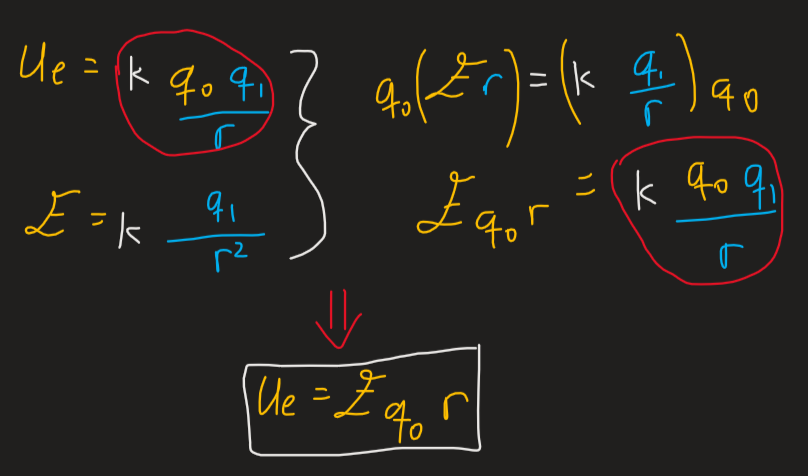 Ue = k q₀ q₁ / r
q₀(E r) = (k q₁ / r) q₀
E = k q₁ / r²
E q₀ r = k q₀ q₁ / r
⇓
Ue = E q₀ r